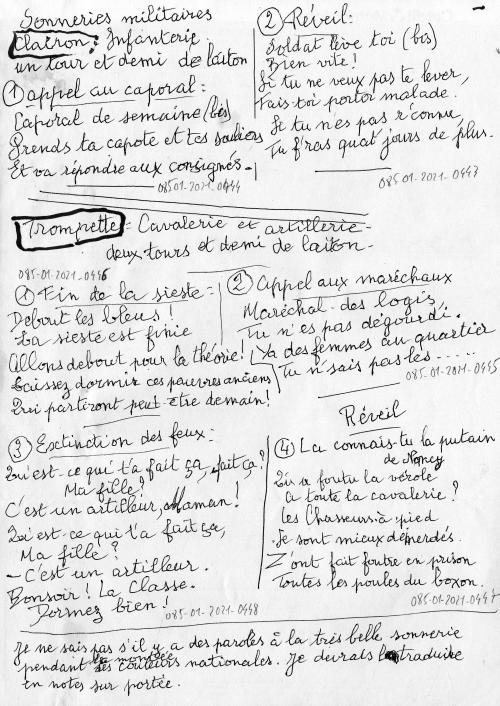 Sonneries militaires
Clairon : Infanterie.
un tour et demi de laiton
① appel au caporal :
Caporal de semaine (bis)
Prends ta capote et tes souliers
Et va répondre aux consignés.
085-01-2021-0444
② Réveil :
Soldat lève toi (bis)
Bien vite !
Si tu ne veux pas te lever,
Fais-toi porter malade.
Si tu n'es pas r'connu,
Tu f'ras quat' jours de plus.
085-01-2021-0443
Trompette = Cavalerie et artillerie -
deux tours et demi de laiton -
085-01-2021-0446
① Fin de la sieste =
Debout les bleus !
La sieste est finie
Allons debout pour la théorie !
Laissez dormir ces pauvres anciens
Qui partiront peut-être demain !
② Appel aux maréchaux
Maréchal-des logis,
Tu n'es pas dégourdi.
Ya des femmes au quartier
Tu n'sais pas les .....
085-01-2021-0445
③ Extinction des feux :
Qu'est-ce qui t'a fait ça, fait ça ?
Ma fille ?
C'est un artilleur, Maman !
Qu'est-ce qui t'a fait ça,
Ma fille ?
- C'est un artilleur.
Bonsoir ! La Classe.
Dormez bien !
085-01-2021-0448
Réveil
④ La connais-tu la putain
de Nancy
Qui a foutu la vérole
à toute la cavalerie ?
Les Chasseurs à pied
Se sont mieux démerdés.
Z'ont fait foutre en prison
Toutes les poules du boxon.
085-01-2021-0447
Je ne sais pas s'il y a des paroles à la très belle sonnerie
pendant la montée des couleurs nationales. Je devrais la traduire
en notes sur portée.